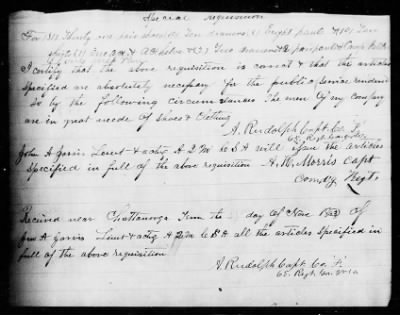 Special requisition
For 131 Thirty one pair shoes Ten
I certify that the above requisition is correct & that the articles
specified are absolutely necessary for the public service rendered
so by the following circumstances The men of my company
are in great neede of Shoes & Clothing
A. Rudolph Capt. Co. F.
65. Regt.
John A Jarvis Lieut & actg A Q M C S A will issue the articles
specified in full of the above requisition A. W. Morris Capt
Comdg Regt.
Received near Chattanooga Tenn the day of Nov. 1863 of
Jno A Jarvis Lieut & actg A Q M C S A all the articles specified in
full of the above requisition
A. Rudolph Capt. Co. "F"
65. Regt. Ga.